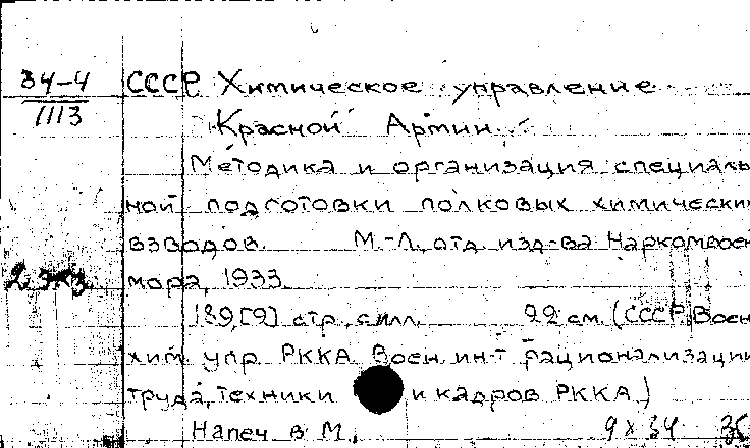 34-4 СССР Химическое управление
1113 Красной Армии.
Методика и организация специаль
ной подготовки полковых химически
взводов. М.-Л., отд. изд-ва Наркомвоен
2 экз мора, 1933.
189,[2] стр., с илл. 22 см. (СССР, Воен
хим. упр. РККА. Воен. ин-т рационализации
труда, техники и кадров РККА)
Напеч. в М. 9 х 34